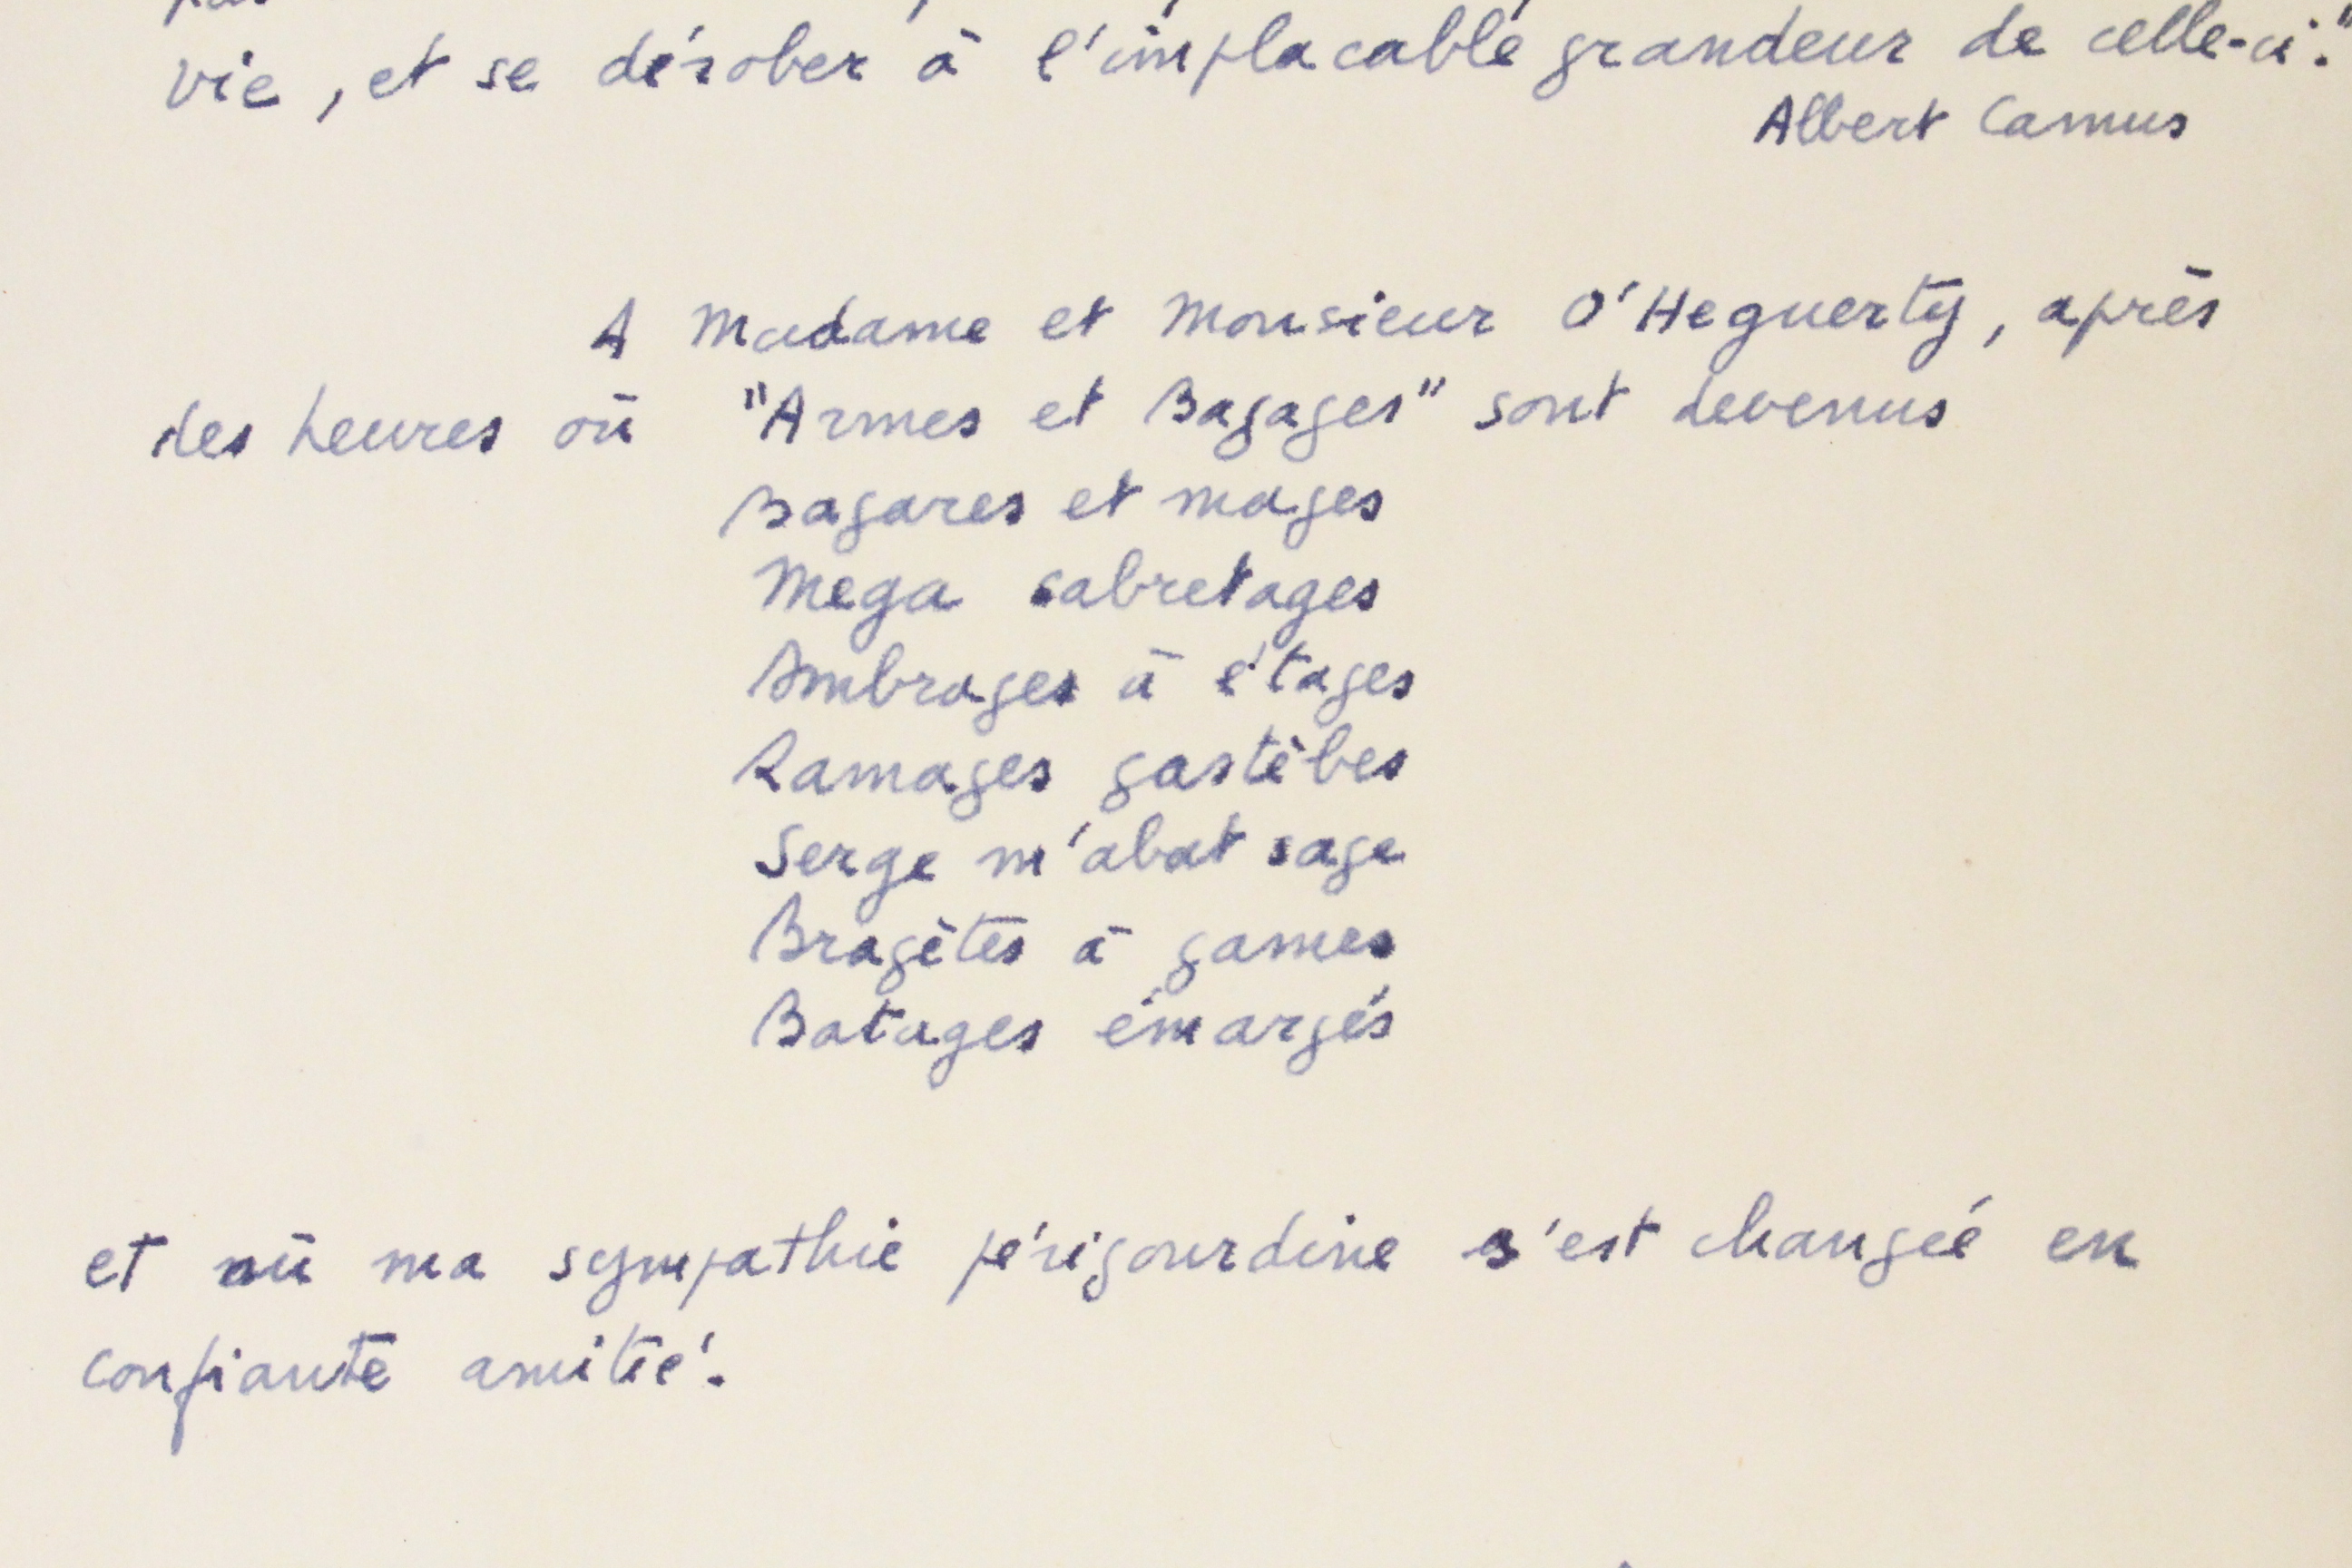 vie, et se dérober à l'implacable grandeur de celle-ci."
Albert Camus
A Madame et Monsieur O'Heguerty, après
des heures où "Armes et Bagages" sont devenus
Bagares et mages
Mega sabretages
Ambrages à étages
Ramages gastèbes
Serge m'abat sage
Bragètes à games
Batages émargés
et où ma sympathie périgourdine s'est changée en
confiante amitié.